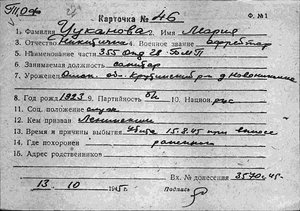 ТОФ
Карточка № 46 Ф. № 1
1. Фамилия Цуканова Имя Мария
3. Отчество Никитична 4. Военное звание ефрейтор
5. Наименование части 355 Отд. БМП
6. Занимаемая должность санитар
7. Уроженец Омск. об. Крутинский р. д Новониколь
8. Год рожд. 1923 9. Партийность б/п 10. Национ. рус
11. Соц. положение служ
12. Кем призван Ленинским
13. Время и причины выбытия Убита 15.8.45
14. Где похоронен
15. Адрес родственников
Вх. № донесения 3570с 45г.
13 10 1945 г. Подпись